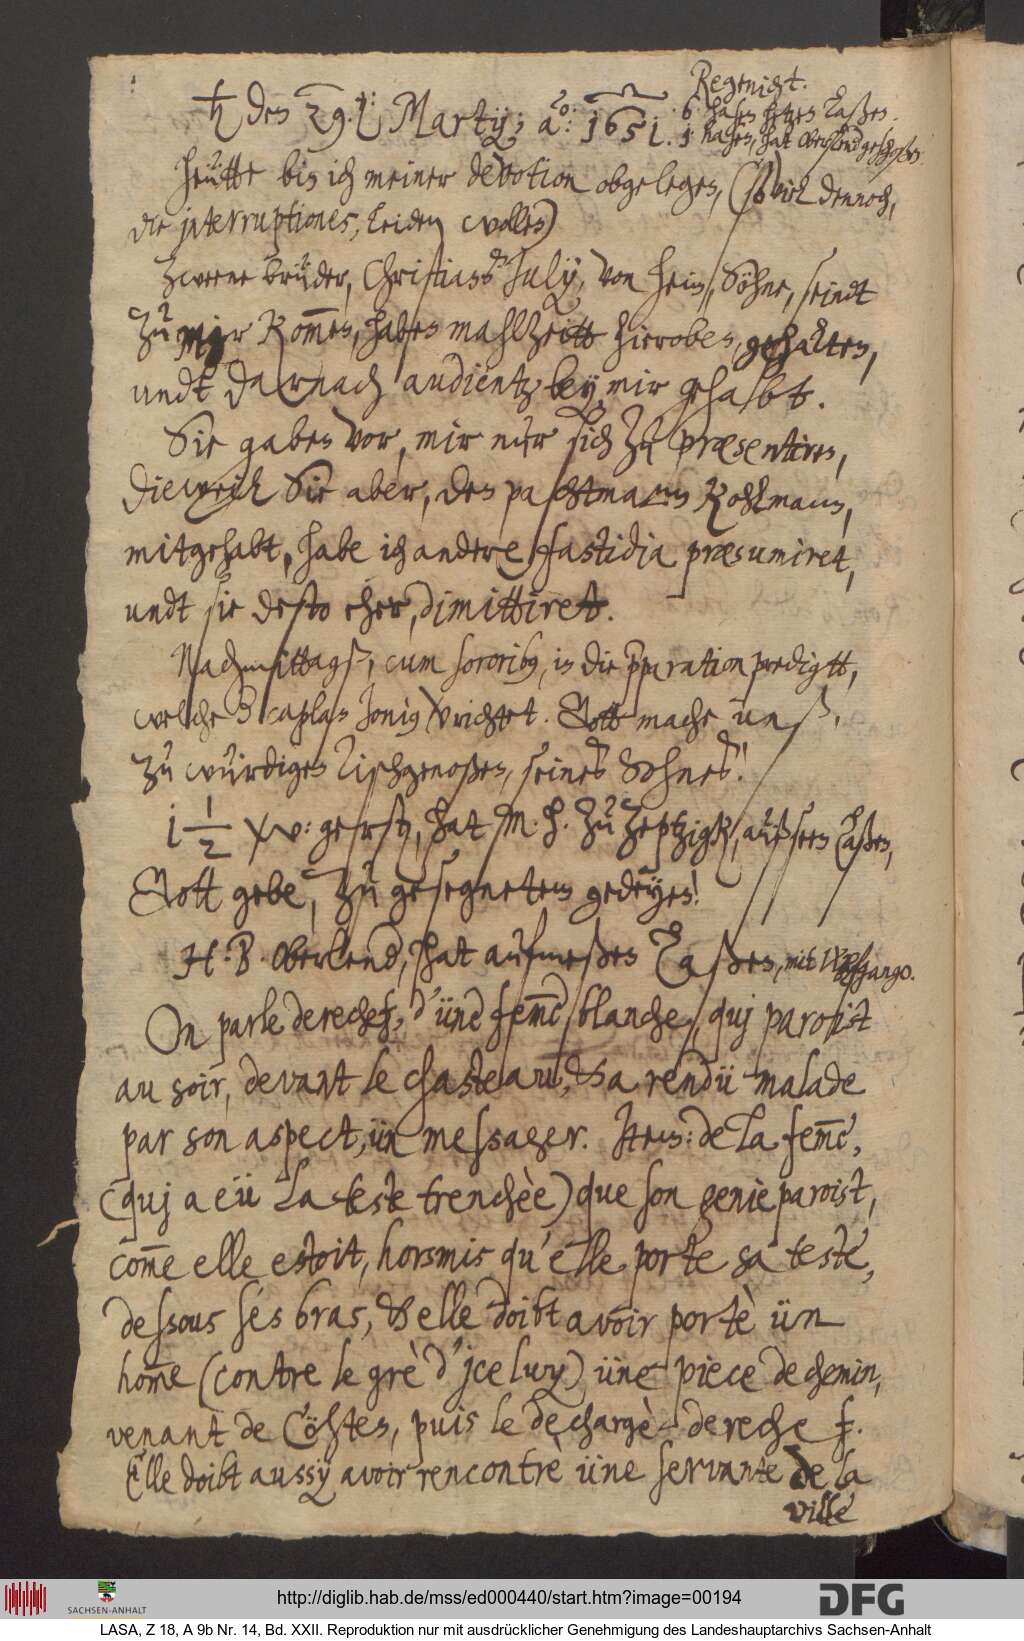 Regenicht.
♄ den 29. Martij; ao: 1651.
6 hasen hetzen laßen.
1 hasen, hat Oberlend geschoßen
Heütte bin ich meiner devotion obgelegen, (so viel dennoch,
die jnterruptiones, leiden wollen)
Zweene brüder, Christians Julij, von Heim, Söhne, seindt
zu mir kommen, haben mahlzeitt hieroben, gehalten,
undt darnach audientz bey mir gehabt.
Sie gaben vor, mir nur sich zu præsentiren,
dieweil Sie aber, den pachtmann Kohlmann,
mitgehabt, habe ich andere fastidia præsumiret,
undt sie desto eher, dimittiret.
Nachmittagß, cum sororibus, in die præparation predigtt,
welche der caplan Jonius verrichtet. Gott mache unß,
zu würdigen Tischgenoßen, seines Sohnes!
1 1/2 w: gerste, hat M. H. zu Zeptzigk, außseen laßen,
Gott gebe, zu gesegnetem gedeyen!
H. B. Oberlend, hat aufmeßen laßen, mit Wolfgango.
On parle derechef, d'üne femme blanche, quj paroist
au soir, devant le chasteau, & a rendü malade
par son aspect, ün messager. Item: de la femme,
(quj a eü la teste trenchèe) que son genie paroist,
comme elle estoit, horsmis qu'elle porte sa teste,
dessous ses bras, & elle doibt avoir portè ün
homme (contre le grè d'jceluy) üne piece de chemin,
venant de Cöhten, puis le dechargè derechef.
Elle doibt aussy avoir rencontrè üne servante de la
ville
http://diglib.hab.de/mss/ed000440/start.htm?image=00194
SACHSEN-ANHALT
DFG
LASA, Z 18, A 9b Nr. 14, Bd. XXII. Reproduktion nur mit ausdrücklicher Genehmigung des Landeshauptarchivs Sachsen-Anhalt